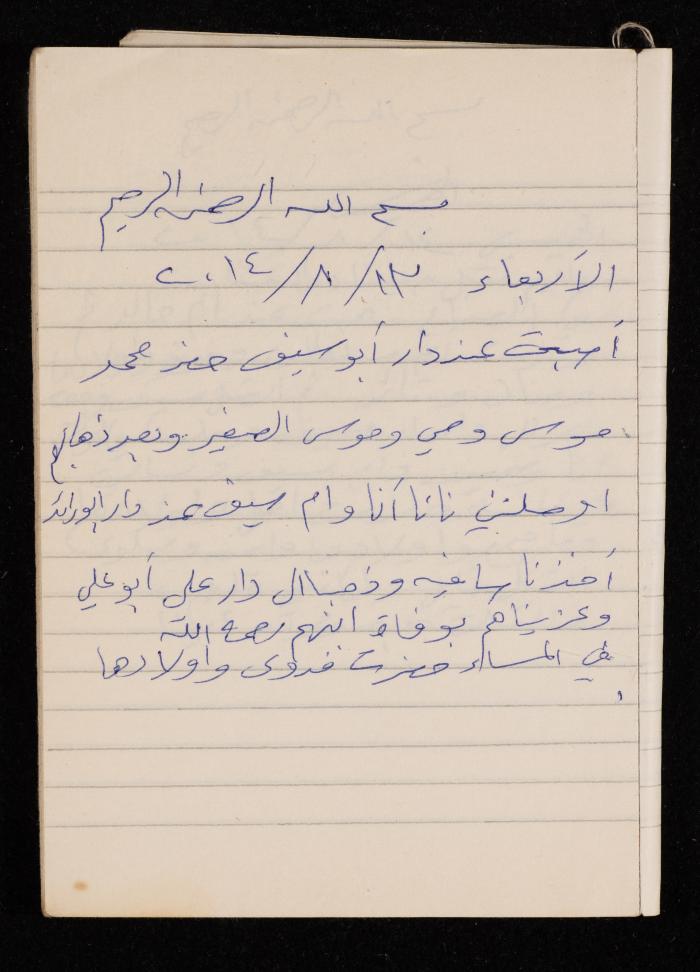 بسم الله الرحمن الرحيم
الأربعاء ١٣/٨/٢٠١٤
أصبحت عند دار أبو سيف حضر محمد
موسى ومي وموسى الصغير وبعد ذهابهم
اوصلتني نانا أنا وام سيف عند دار ابو رائد
أخذنا سامية وذهبنا الى دار علي أبو علي
وعزيناهم بوفاة ابنهم رحمه الله
في المساء حضرت فدوى وأولادها
.